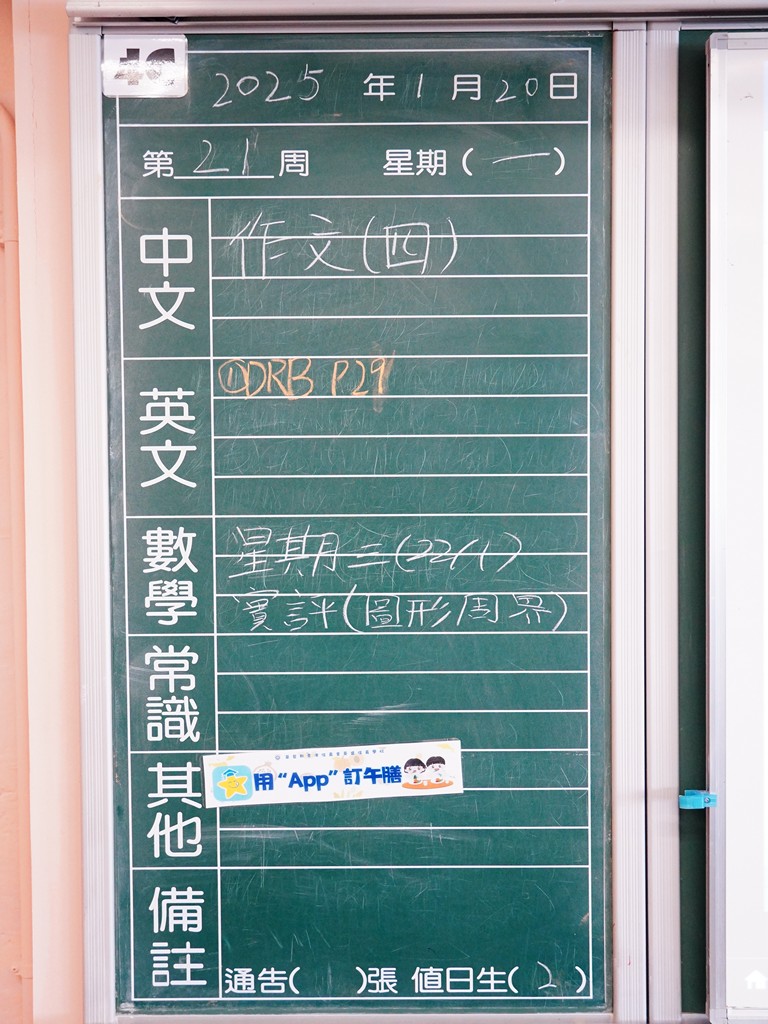 2025 年 1 月 20 日
第 21 周 星期 ( 一 )
中文
作文(四)
英文
①DRB P29
數學
星期三(22/1)
實評(圖形周界)
常識
其他
用 “App” 訂午膳
備註
通告( )張 值日生( 2 )